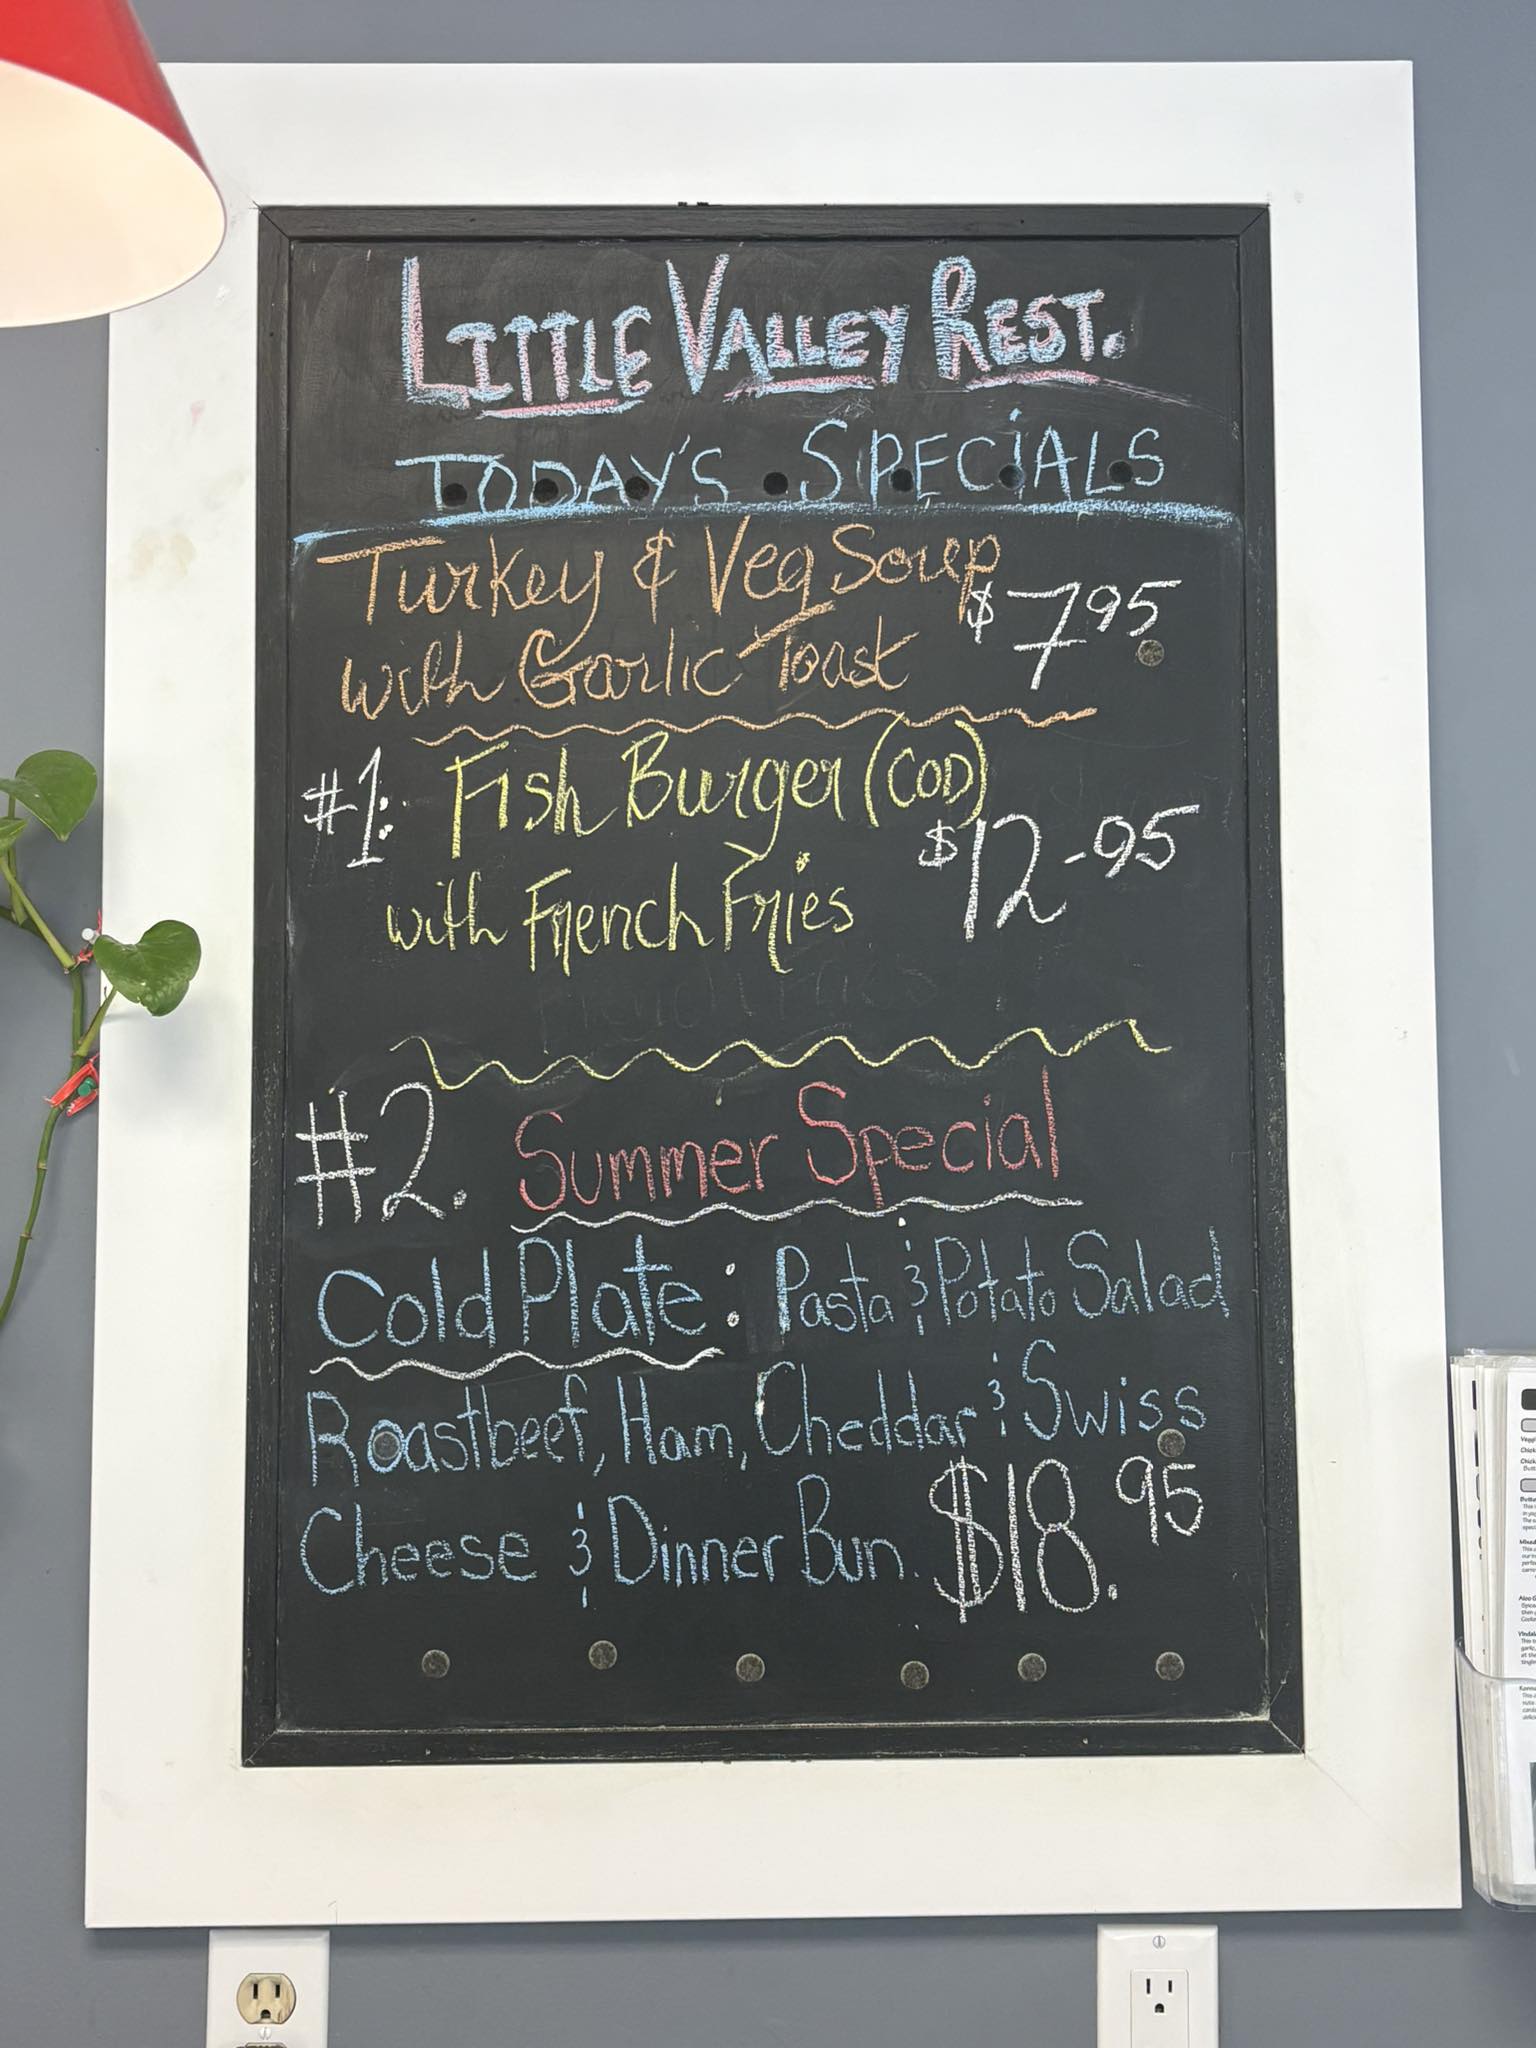 LITTLE VALLEY REST.
TODAY'S SPECiALS
Turkey & Veg Soup
with Garlic Toast
$7 95
#1: Fish Burger (COD)
with French Fries
$12-95
#2. Summer Special
Cold Plate: Pasta & Potato Salad
Roastbeef, Ham, Cheddar & Swiss
Cheese & Dinner Bun. $18.95